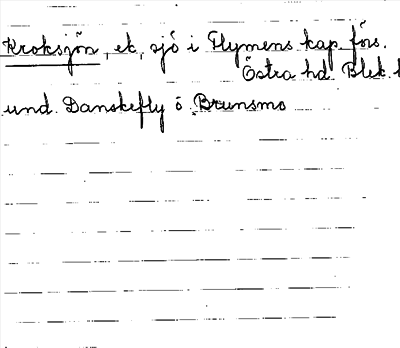 Kroksjön, ek, sjö i Flymens kap. förs.
Östra hd Blek.
und. Danskefly o Brunsmo